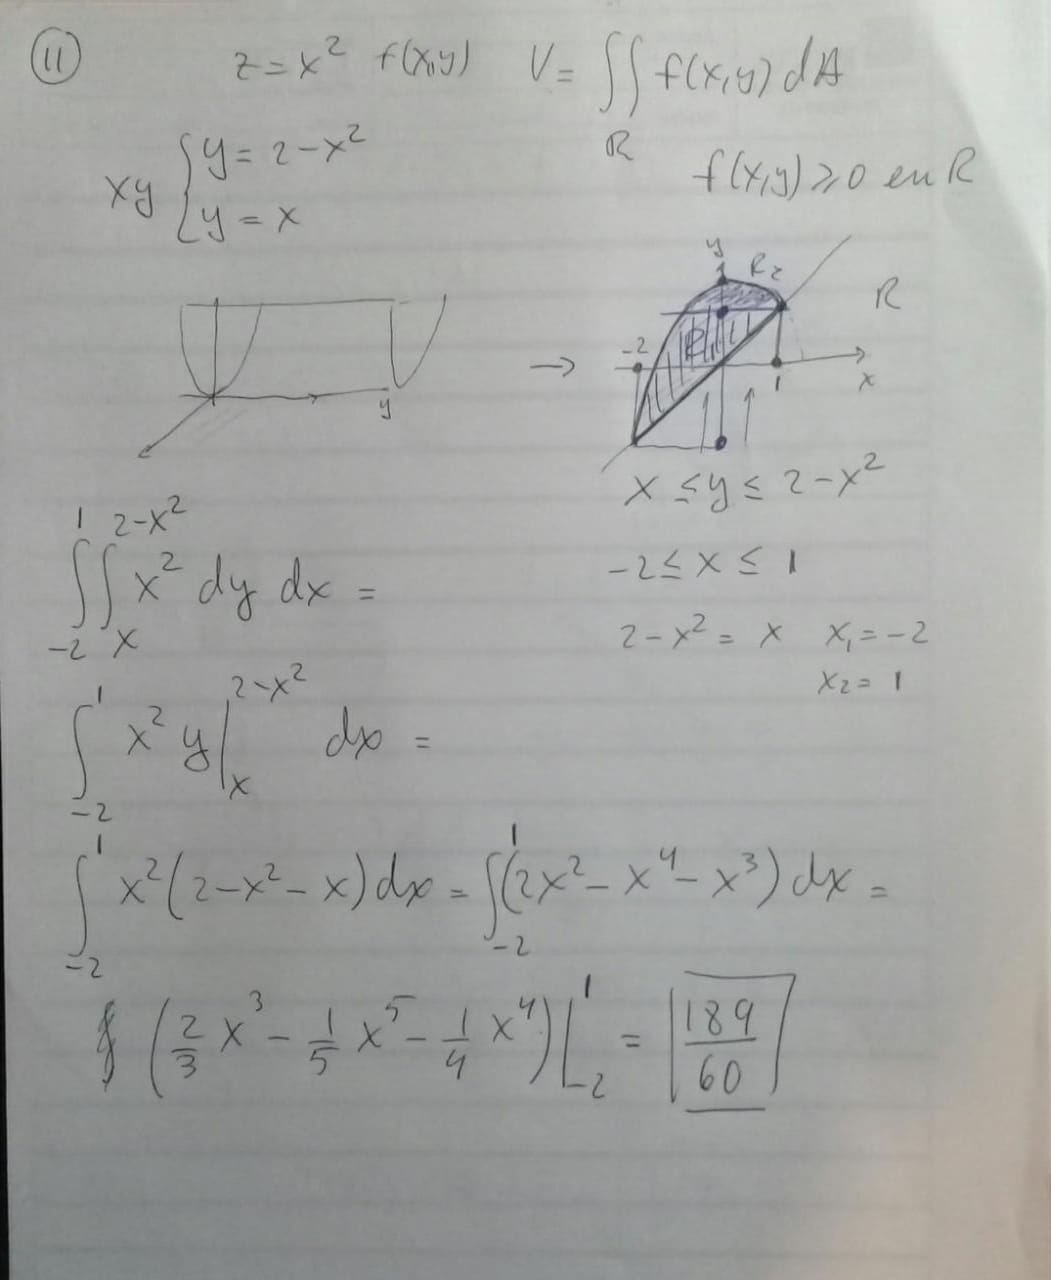 11 z = x² f(x,y) V = ∬ f(x,y) dA
R
xy { y = 2-x²
y = x
f(x,y) ≥ 0 en R
y R₂ R
R₁
-2 1 x
y
→
x ≤ y ≤ 2-x²
-2 ≤ x ≤ 1
2-x² = x x₁ = -2
x₂ = 1
∫₋₂¹ ∫ₓ^(2-x²) x² dy dx =
∫₋₂¹ x² y |ₓ^(2-x²) dx =
∫₋₂¹ x² (2-x²-x) dx = ∫₋₂¹ (2x² - x⁴ - x³) dx =
(2/3 x³ - 1/5 x⁵ - 1/4 x⁴) |₋₂¹ = 189/60